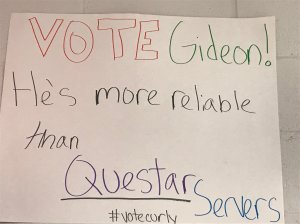 VOTE Gideon!
He's more reliable
than
Questar Servers
#votecurly